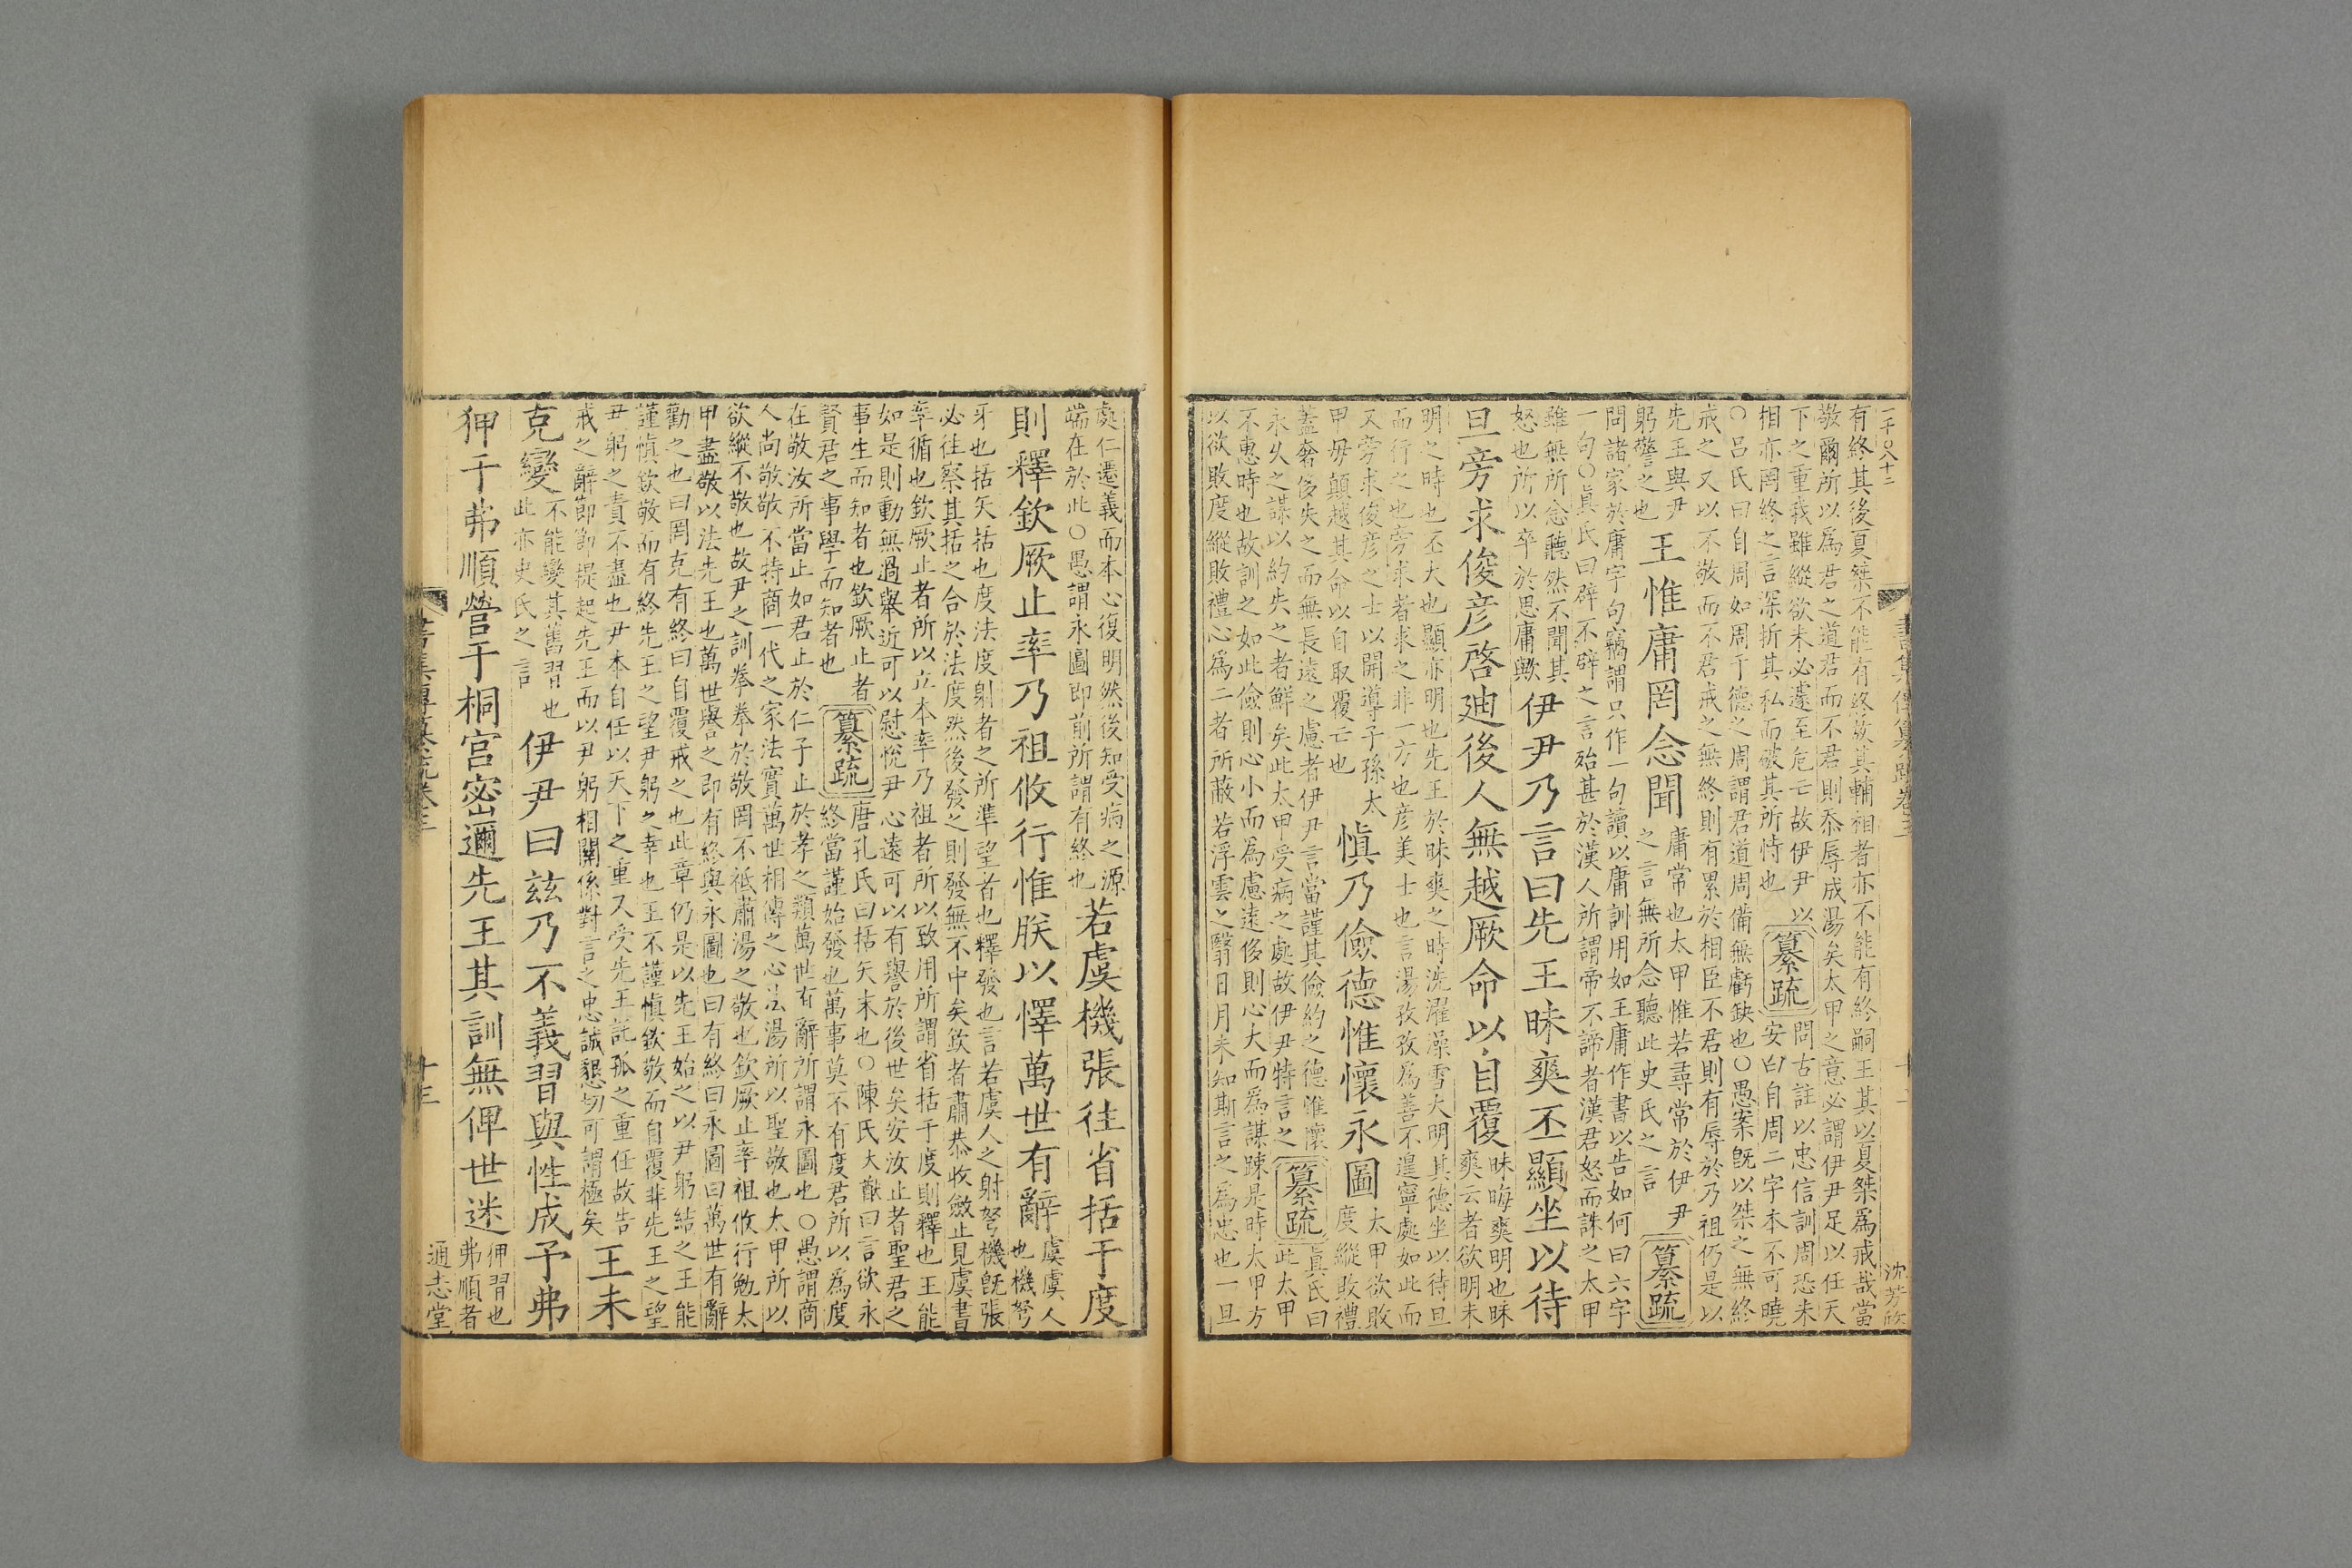 一千〇八十二
沈芳
有終其後夏桀不能有終故其輔相者亦不能有終嗣王其以夏桀爲戒哉當
敬爾所以爲君之道君而不君則忝辱成湯矣太甲之意必謂伊尹足以任天
下之重我雖縱欲未必遽至危亡故伊尹以
相亦罔終之言深折其私而破其所恃也
纂疏
問古註以忠信訓周恐未
安曰自周二字本不可曉
〇呂氏曰自周如周于德之周謂君道周備無虧缺也〇愚案旣以桀之無終
戒之又以不敬而不君戒之無終則有累於相臣不君則有辱於乃祖仍是以
先王與尹
躬警之也
王惟庸罔念聞
庸常也太甲惟若尋常於伊尹
之言無所念聽此史氏之言
纂疏
問諸家於庸字句竊謂只作一句讀以庸訓用如王庸作書以告如何曰六字
一句〇眞氏曰辟不辟之言殆甚於漢人所謂帝不諦者漢君怒而誅之太甲
雖無所念聽然不聞其
怒也所以卒於思庸歟
伊尹乃言曰先王昧爽丕顯坐以待
旦旁求俊彥啓迪後人無越厥命以自覆
昧晦爽明也昧
爽云者欲明未
明之時也丕大也顯亦明也先王於昧爽之時洗濯澡雪大明其德坐以待旦
而行之也旁求者求之非一方也彥美士也言湯孜孜爲善不遑寧處如此而
又旁求俊彥之士以開導子孫太
甲毋顛越其命以自取覆亡也
愼乃儉德惟懷永圖
太甲欲敗
度縱敗禮
蓋奢侈失之而無長遠之慮者伊尹言當謹其儉約之德惟懷
永久之謀以約失之者鮮矣此太甲受病之處故伊尹特言之
纂疏
眞氏曰
此太甲
不惠時也故訓之如此儉則心小而爲慮遠侈則心大而爲謀踈是時太甲方
以欲敗度縱敗禮心爲二者所蔽若浮雲之翳日月未知斯言之爲忠也一旦
處仁遷義而本心復明然後知受病之源
端在於此〇愚謂永圖即前所謂有終也
若虞機張往省括于度
則釋欽厥止率乃祖攸行惟朕以懌萬世有辭
虞虞人
也機弩
牙也括矢括也度法度射者之所準望者也釋發也言若虞人之射弩機旣張
必往察其括之合於法度然後發之則發無不中矣欽者肅恭收斂止見虞書
率循也欽厥止者所以立本率乃祖者所以致用所謂省括于度則釋也王能
如是則動無過舉近可以慰悅尹心遠可以有譽於後世矣安汝止者聖君之
事生而知者也欽厥止者
賢君之事學而知者也
纂疏
唐孔氏曰括矢末也〇陳氏大猷曰言欲永
終當謹始發也萬事莫不有度君所以爲度
在敬汝所當止如君止於仁子止於孝之類萬世有辭所謂永圖也〇愚謂商
人尚敬敬不特商一代之家法實萬世相傳之心法湯所以聖敬也太甲所以
欲縱不敬也故尹之訓拳拳於敬罔不祗肅湯之敬也欽厥止率祖攸行勉太
甲盡敬以法先王也萬世譽之即有終與永圖也曰有終曰永圖曰萬世有辭
勸之也曰罔克有終曰自覆戒之也此章仍是以先王始之以尹躬結之王能
謹愼欽敬而有終先王之望尹躬之幸也王不謹愼欽敬而自覆非先王之望
尹躬之責不盡也尹本自任以天下之重又受先王託孤之重任故告
戒之辭節節提起先王而以尹躬相關係對言之忠誠懇切可謂極矣
王未
克變
不能變其舊習也
此亦史氏之言
伊尹曰茲乃不義習與性成予弗
狎于弗順營于桐宮密邇先王其訓無俾世迷
狎習也
弗順者
書集傳纂疏卷三
十三
通志堂